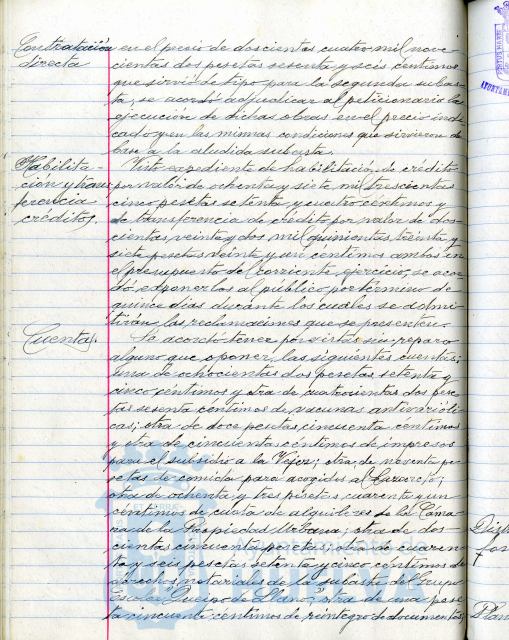 Contratación
directa
en el precio de doscientas cuatro mil nove-
cientas dos pesetas sesenta y seis centimos
que sirvió de tipo para la segunda subas-
ta, se acordó adjudicar al peticionario la
ejecución de dichas obras en el precio indi-
cado y en las mismas condiciones que sirvieron de
base a la aludida subasta.
Habilita-
ción y trans
ferencia
créditos.
Visto expediente de habilitación de crédito
por valor de ochenta y siete mil trescientas
cinco pesetas setenta y cuatro centimos y
de transferencia de crédito por valor de dos-
cientas veinte y dos mil quinientas treinta y
siete pesetas veinte y un centimos ambos en
el presupuesto del corriente ejercicio, se acor-
dó exponerlos al público por término de
quince dias durante los cuales se admi-
tirán las reclamaciones que se presenten.
Cuentas.
Se acordó tener por vistas sin reparo
alguno que oponer, las siguientes cuentas:
una de ochocientas dos pesetas setenta y
cinco céntimos y otra de cuatrocientas dos pese-
tas sesenta centimos de vacunas antivarióli-
cas; otra de doce pesetas cincuenta centimos
y otra de cincuenta centimos de impresos
para el subsidio a la Vejez; otra de noventa pe-
setas de comida para acogidos al
otra de ochenta y tres pesetas cuarenta y un
centimos de cuota de alquileres de la Cáma-
ra de la Propiedad Urbana; otra de dos-
cientas cincuenta pesetas y otra de cuaren-
ta y seis pesetas setenta y cinco céntimos de
derechos notariales de la subasta del Grupo
Escolar "Queipo de Llano"; otra de una pese-
ta cincuenta céntimos de reintegro de documentos;
Ayuntamiento de